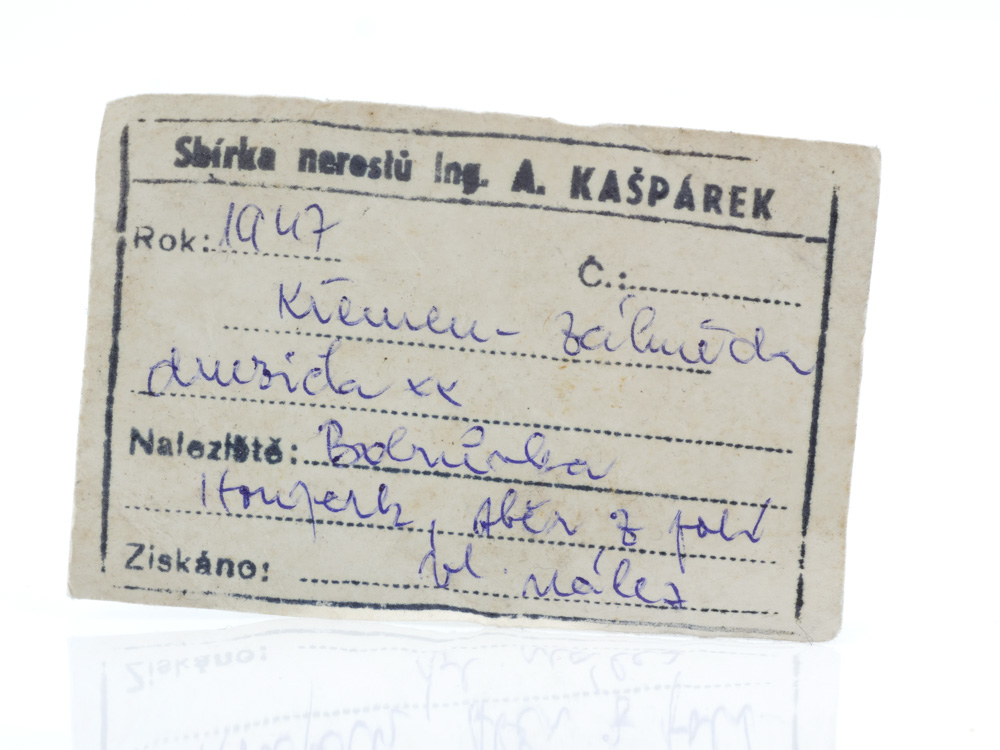 Sbírka nerostů Ing. A. KAŠPÁREK
Rok: 1947
Č.:
Křemen - záhněda
druzička xx
Naleziště: Bobrůvka
sběr z polí
Získáno: vl. nález